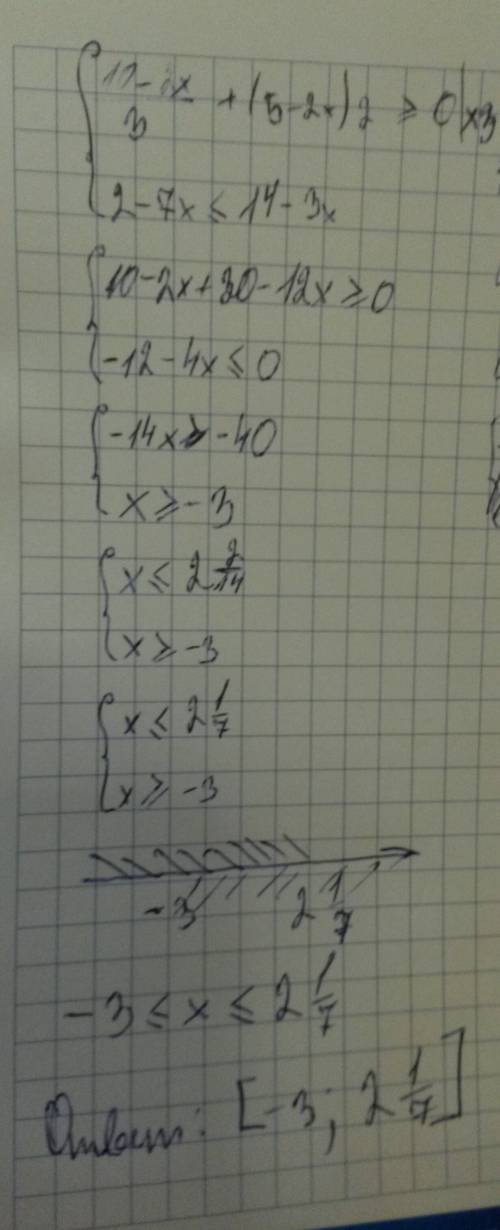 + (5-2x)2 ≥ 0 | x3
3
2-7x ≤ 14-3x
10-2x+30-12x ≥ 0
-12-4x ≤ 0
-14x ≥ -40
x ≥ -3
x ≤ 2 2/14
x ≥ -3
x ≤ 2 1/7
x ≥ -3
-3 2 1/7
-3 ≤ x ≤ 2 1/7
Ответ: [-3; 2 1/7]